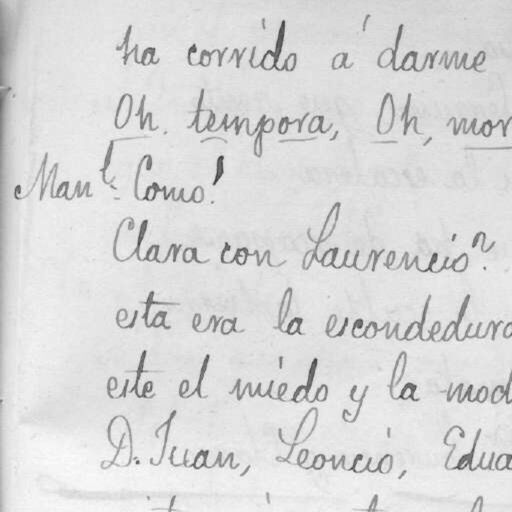 ha corrido á darme
Oh. tempora, Oh, mor
Manl. Como!
Clara con Laurencio?
esta era la escondedura
este el miedo y la mod
D. Juan, Leoncio, Edua